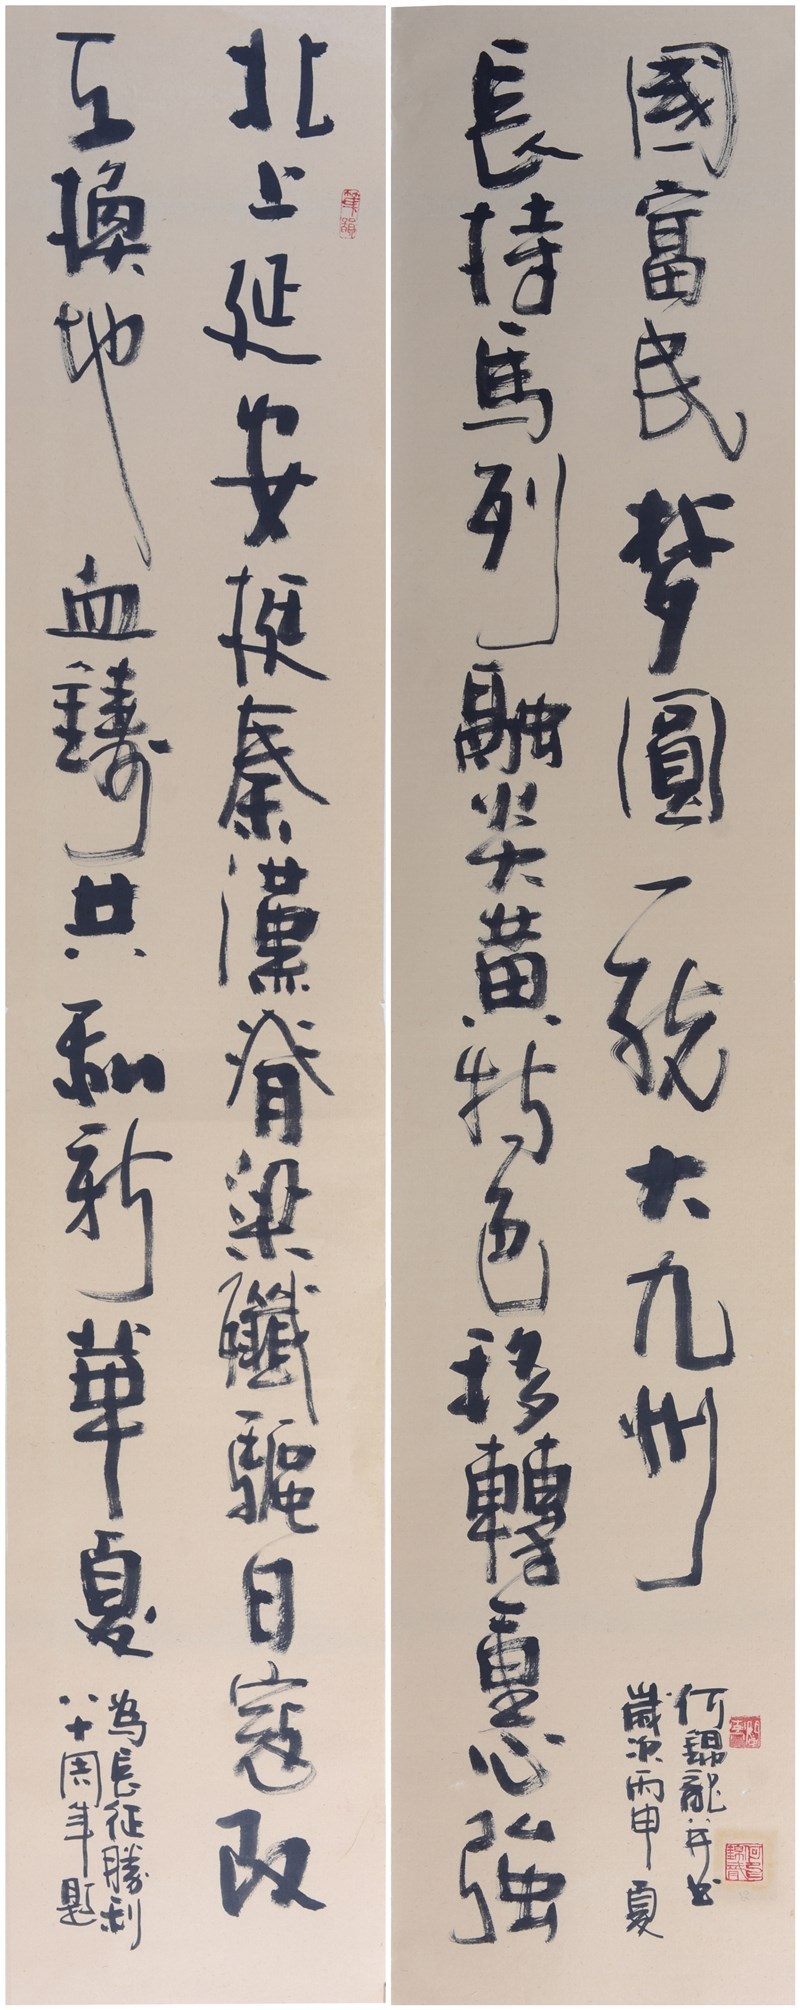 北上延安挺秦漢脊梁殲驅日寇改
天換地血鑄共和新華夏
為長征勝利
八十周年題
長持馬列融炎黃特色移轉重心強
國富民夢圓一統大九州
何錦龍并書
歲次丙申夏